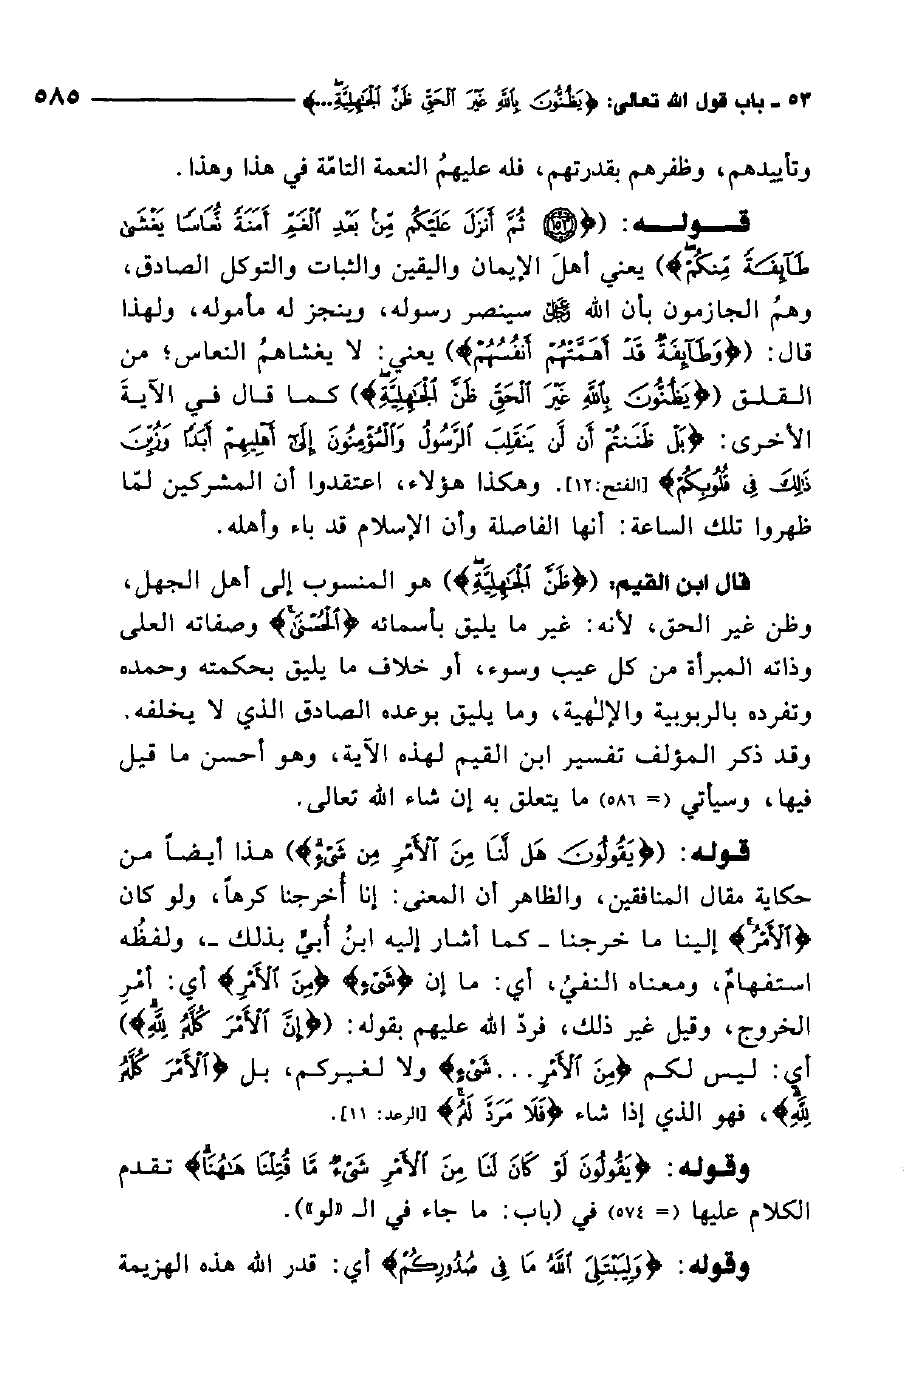 ٥٣ ـ باب قول الله تعالى: ﴿يَظُنُّونَ بِاللَّهِ غَيْرَ الْحَقِّ ظَنَّ الْجَاهِلِيَّةِ...﴾ ٥٨٥
وتأييدهم، وظفرهم بقدرتهم، فله عليهمُ النعمة التامّة في هذا وهذا.
قـــولـــه: (﴿١٥٣﴾ ثُمَّ أَنزَلَ عَلَيْكُم مِّنْ بَعْدِ الْغَمِّ أَمَنَةً نُّعَاسًا يَغْشَىٰ
طَآئِفَةً مِّنكُمْ﴾) يعني أهلَ الإيمان واليقين والثبات والتوكل الصادق،
وهمُ الجازمون بأن الله ﷻ سينصر رسوله، وينجز له مأموله، ولهذا
قال: (﴿وَطَآئِفَةٌ قَدْ أَهَمَّتْهُمْ أَنفُسُهُمْ﴾) يعني: لا يغشاهمُ النعاس؛ من
القلق (﴿يَظُنُّونَ بِاللَّهِ غَيْرَ الْحَقِّ ظَنَّ الْجَاهِلِيَّةِ﴾) كما قال في الآيةَ
الأخرى: ﴿بَلْ ظَنَنتُمْ أَن لَّن يَنقَلِبَ الرَّسُولُ وَالْمُؤْمِنُونَ إِلَىٰ أَهْلِيهِمْ أَبَدًا وَزُيِّنَ
ذَٰلِكَ فِي قُلُوبِكُمْ﴾ [الفتح: ١٢]. وهكذا هؤلاء، اعتقدوا أن المشركين لمّا
ظهروا تلك الساعة: أنها الفاصلة وأن الإسلام قد باء وأهله.
قال ابن القيم: (﴿ظَنَّ الْجَاهِلِيَّةِ﴾) هو المنسوب إلى أهل الجهل،
وظن غير الحق، لأنه: غير ما يليق بأسمائه ﴿الْحُسْنَىٰ﴾ وصفاته العلى
وذاته المبرأة من كل عيب وسوء، أو خلاف ما يليق بحكمته وحمده
وتفرده بالربوبية والإلٰهية، وما يليق بوعده الصادق الذي لا يخلفه.
وقد ذكر المؤلف تفسير ابن القيم لهذه الآية، وهو أحسن ما قيل
فيها، وسيأتي (= ٥٨٦) ما يتعلق به إن شاء الله تعالى.
قـولـه: (﴿يَقُولُونَ هَل لَّنَا مِنَ الْأَمْرِ مِن شَيْءٍ﴾) هذا أيضاً من
حكاية مقال المنافقين، والظاهر أن المعنى: إنا أُخرجنا كرهاً، ولو كان
﴿الْأَمْرُ﴾ إلينا ما خرجنا ـ كما أشار إليه ابنُ أُبيٍّ بذلك ـ، ولفظُه
استفهامٌ، ومعناه النفيُ، أي: ما إن ﴿شَيْءٍ﴾ ﴿مِنَ الْأَمْرِ﴾ أي: أمْرِ
الخروج، وقيل غير ذلك، فردّ الله عليهم بقوله: (﴿إِنَّ الْأَمْرَ كُلَّهُ لِلَّهِ﴾)
أي: ليس لكم ﴿مِنَ الْأَمْرِ ... شَيْءٍ﴾ ولا لغيركم، بل ﴿الْأَمْرَ كُلَّهُ
لِلَّهِ﴾، فهو الذي إذا شاء ﴿فَلَا مَرَدَّ لَهُ﴾ [الرعد: ١١].
وقـولـه: ﴿يَقُولُونَ لَوْ كَانَ لَنَا مِنَ الْأَمْرِ شَيْءٌ مَّا قُتِلْنَا هَاهُنَا﴾ تقدم
الكلام عليها (= ٥٧٤) في (باب: ما جاء في الـ «لو»).
وقوله: ﴿وَلِيَبْتَلِيَ اللَّهُ مَا فِي صُدُورِكُمْ﴾ أي: قدر الله هذه الهزيمة